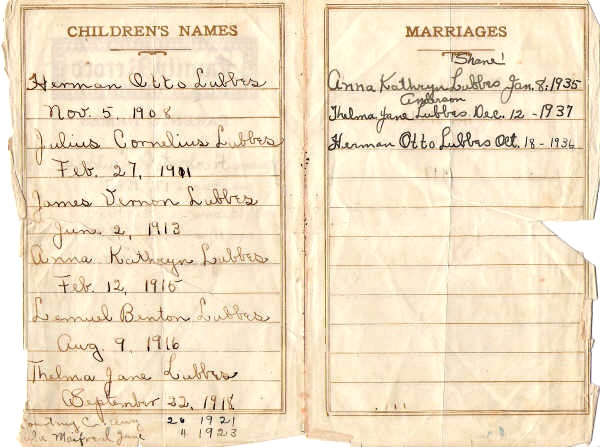 CHILDREN'S NAMES
Herman Otto Lubbes
Nov. 5, 1908
Julius Cornelius Lubbes
Feb. 27, 1911
James Vernon Lubbes
June 2, 1913
Anna Kathryn Lubbes
Feb. 12, 1915
Lemuel Benton Lubbes
Aug 9, 1916
Thelma Jane Lubbes
September 22, 1918
26 1921
Jane 4 1923
MARRIAGES
"Shane"
Anna Kathryn Lubbes Jan. 8, 1935
Anderson
Thelma Jane Lubbes Dec. 12 - 1937
Herman Otto Lubbes Oct. 18 - 1936